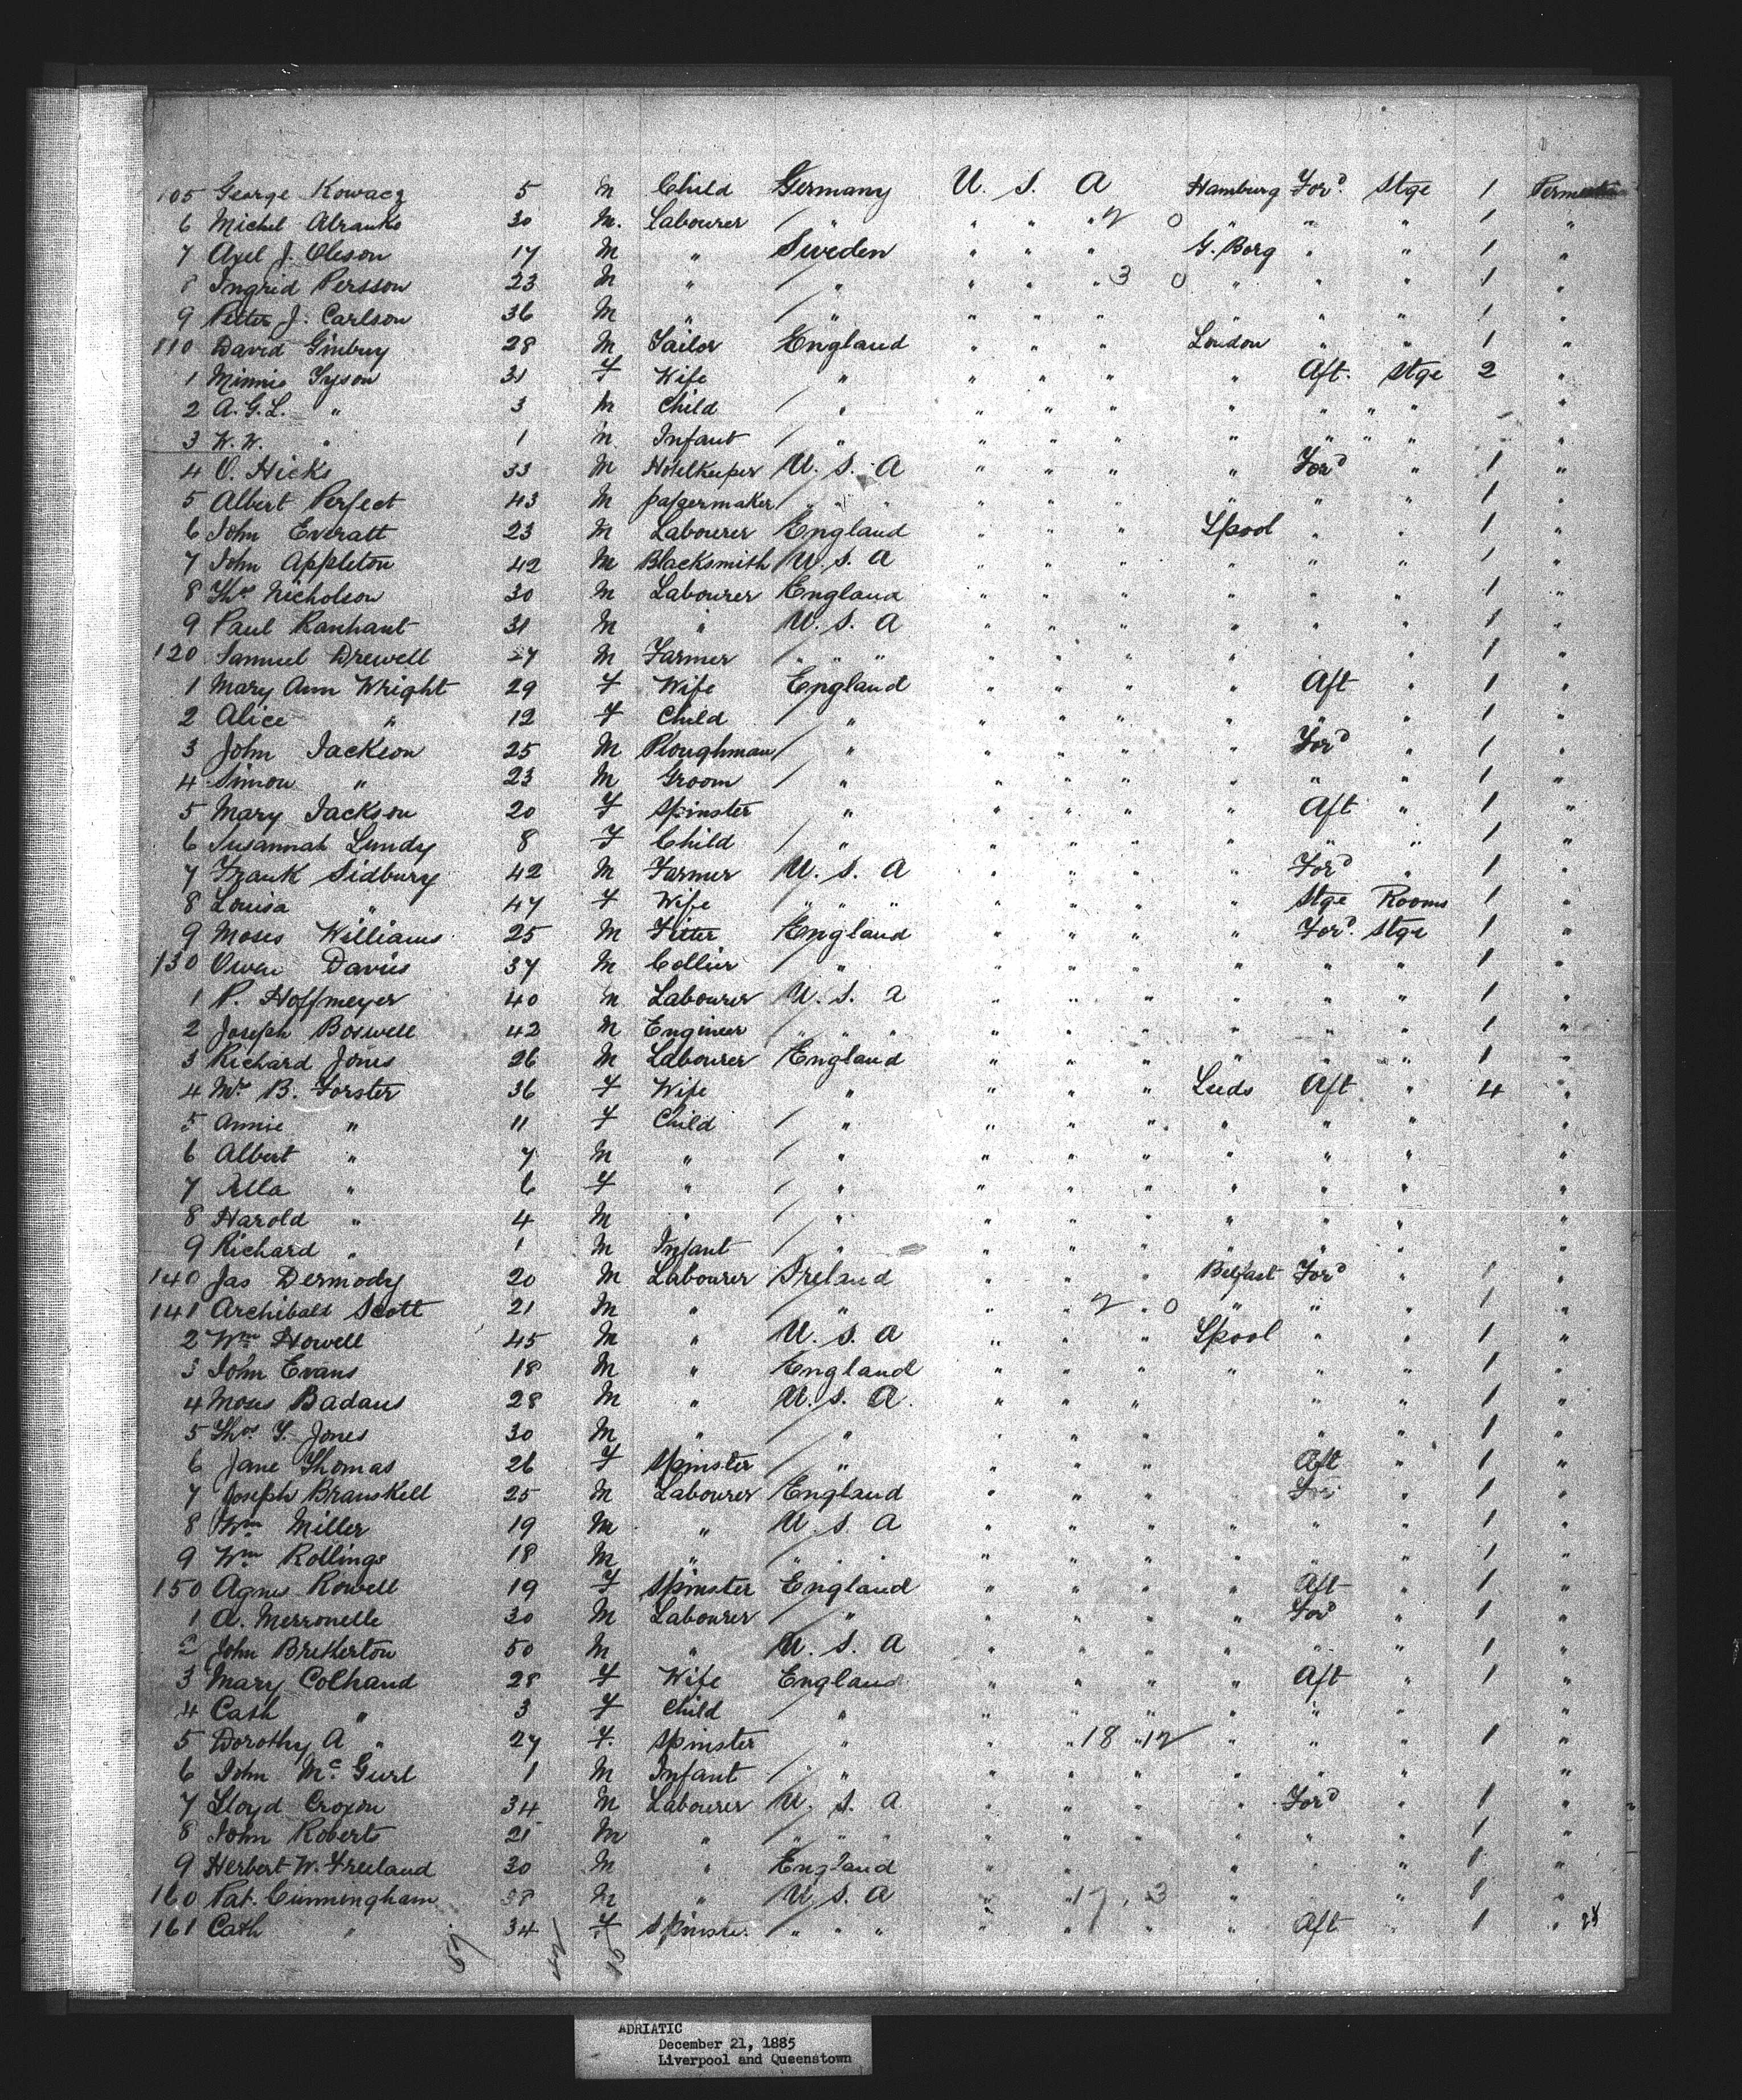 105 George Kowacz 5 M Child Germany U. S. A Hamburg For^d. Stge 1
6 Michel 30 M. Labourer / " " " " 2 0 " " " 1 "
7 Axel J. Oleson 17 M " Sweden " " " G. Borg " " 1 "
8 Ingrid Persson 23 M " / " " " " 3 0 " " " 1 "
9 Petter J. Carlson 36 M " / " " " " " " " 1 "
110 David 28 M Tailor England " " " London " " 1 "
1 Minnie Tyson 31 F Wife " " " " " Aft. Stge 2 "
2 A. G. L. " 3 M Child / " " " " " " " " "
3 W. W. " 1 M Infant / " " " " " " " " "
4 O. Hicks 33 M Hotelkeeper U. S. A " " " " For^d " 1 "
5 Albert Perfect 43 M papermaker / " " " " " " " " 1 "
6 John Everatt 23 M Labourer England " " " Lpool " " 1 "
7 John Appleton 42 M Blacksmith U. S. A " " " " " " 1 "
8 Tho^s Nicholson 30 M Labourer England " " " " " " 1 "
9 Paul Ranhant 31 M " U. S. A " " " " " " 1 "
120 Samuel Drewell 27 M Farmer / " " " " " " " " " 1 "
1 Mary Ann Wright 29 F Wife England " " " " Aft " 1 "
2 Alice " 12 F Child / " " " " " " " 1 "
3 John Jackson 25 M Ploughman / " " " " " For^d " 1 "
4 Simon " 23 M Groom / " " " " " " " 1 "
5 Mary Jackson 20 F Spinster " " " " " Aft " 1 "
6 Susannah Lundy 8 F Child / " " " " " " " 1 "
7 Frank Sidbury 42 M Farmer U. S. A " " " " For^d " 1 "
8 Louisa " 47 F Wife / " " " " " " " Stge Rooms 1 "
9 Moses Williams 25 M Fitter England " " " " For^d. Stge 1 "
130 Owen Davies 37 M Collier / " " " " " " " 1 "
1 P. Hoffmeyer 40 M Labourer U. S. A " " " " " " 1 "
2 Joseph Boswell 42 M Engineer / " " " " " " " " " 1 "
3 Richard Jones 26 M Labourer England " " " " " " 1 "
4 Mrs B. Forster 36 F Wife " " " " Leeds Aft " 4 "
5 Annie " 11 F Child / " " " " " " " "
6 Albert " 7 M " / " " " " " " " "
7 Ella " 6 F " / " " " " " " " "
8 Harold " 4 M " / " " " " " " " "
9 Richard " 1 M Infant / " " " " " " " "
140 Jas Dermody 20 M Labourer Ireland " " " Belfast For^d " 1 "
141 Archibald Scott 21 M " / " " " 2 " 0 " " " 1 "
2 W^m Howell 45 M " U. S. A " " " Lpool " " 1 "
3 John Evans 18 M " England " " " " " " 1 "
4 Moses Badans 28 M " U. S. A. " " " " " 1 "
5 Tho^s T. Jones 30 M " / " " " " " " 1 "
6 Jane Thomas 26 F Spinster / " " " " Aft " 1 "
7 Joseph Branskell 25 M Labourer England " " " For^d " 1 "
8 W^m Miller 19 M " U. S. A " " " " " " 1 "
9 W^m Rollings 18 M " / " " " " " " " " " 1 "
150 Agnes Rowell 19 F Spinster England " " " " Aft " 1 "
1 A. Merronelle 30 M Labourer / " " " " " For^d " 1 "
2 John Bretherton 50 M " U. S. A " " " " " " 1 "
3 Mary Colhand 28 F Wife England " " " " Aft " 1 "
4 Cath " 3 F Child " " " " " " " "
5 Dorothy A " 27 F. Spinster " " " 18 " 12 " " " 1 "
6 John M^c Gurl 1 M Infant / " " " " " " " "
7 Lloyd Croxon 34 M Labourer U. S. A " " " " For^d " 1 "
8 John Roberts 21 M " / " " " " " " " " " 1 "
9 Herbert W. Freeland 30 M " England " " " " " " 1 "
160 Pat. Cunningham 38 M " U. S. A " " 17 . 3 " " " 1 "
161 Cath " 34 F Spinster. / " " " " " " " Aft " 1 "
ADRIATIC
December 21, 1885
Liverpool and Queenstown